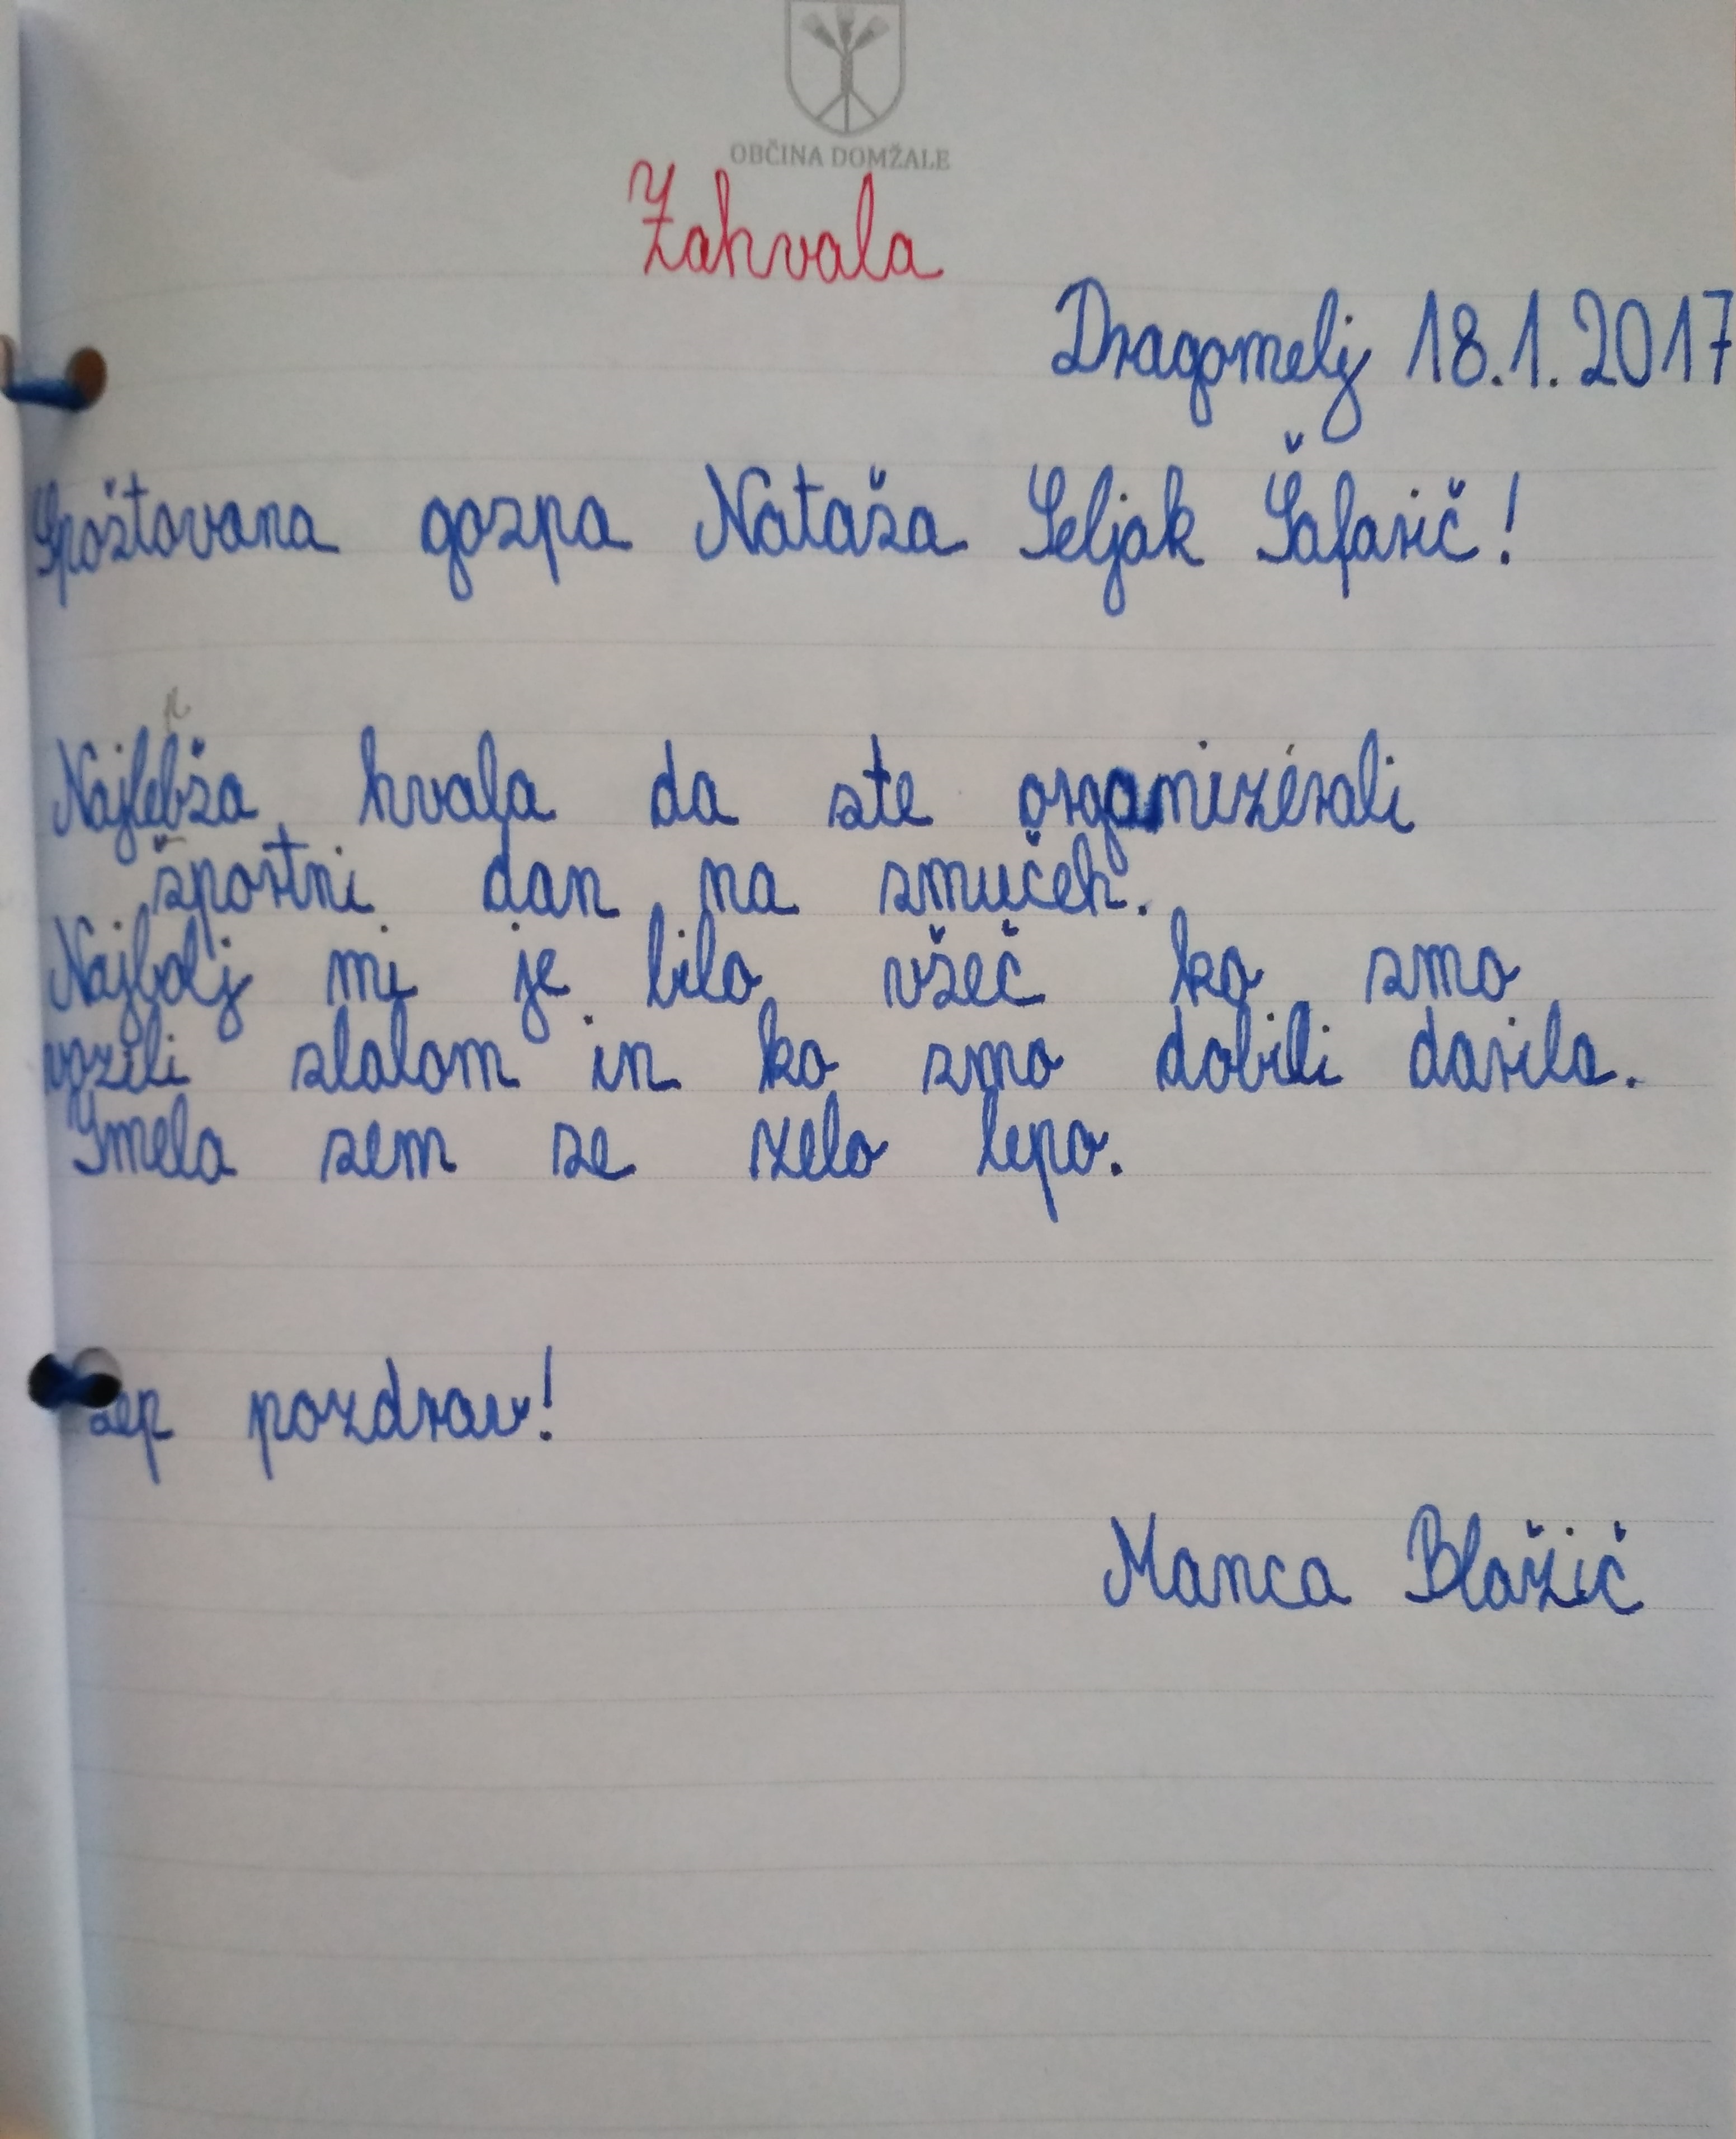 OBČINA DOMŽALE
Zahvala
Dragomelj 18.1.2017
Spoštovana gospa Nataša Seljak Šafarič!
p
Najlebša hvala da ste organizérali
športni dan na smučeh.
Najbolj mi je bilo všeč ko smo
vozili slalom in ko smo dobili darila.
Imela sem se zelo lepo.
Lep pozdrav!
Manca Blažič